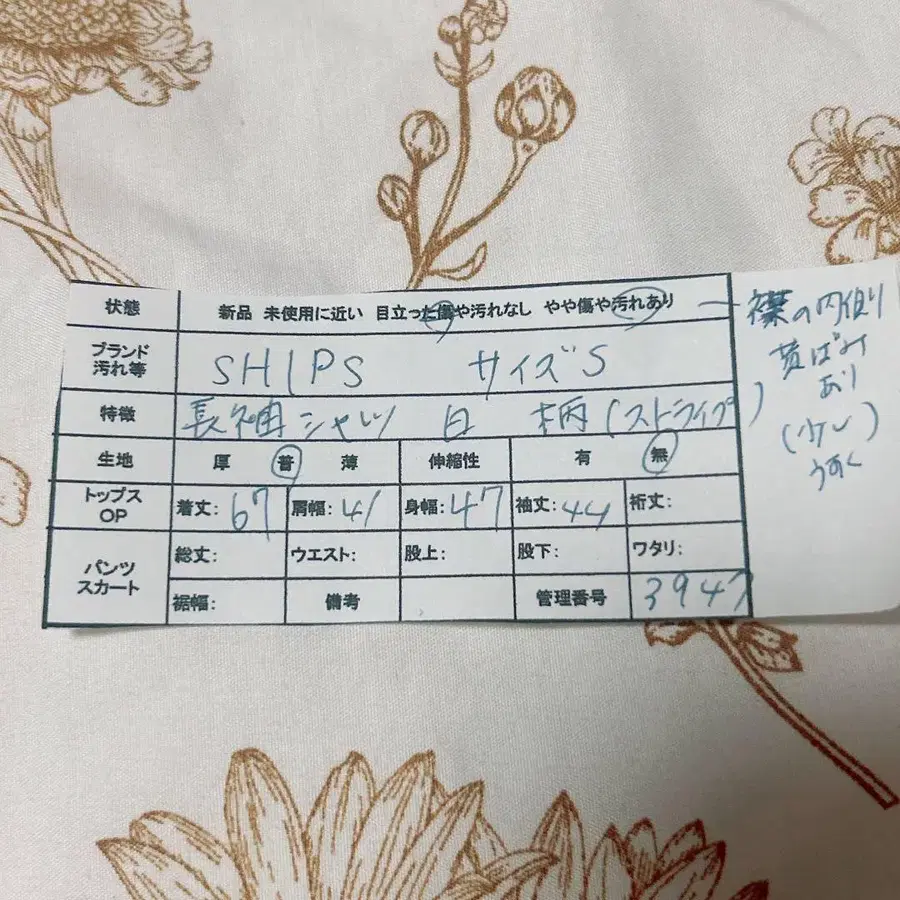 状態 新品 未使用に近い 目立った傷や汚れなし やや傷や汚れあり
ブランド
汚れ等
SHIPS サイズS
特徴 長袖シャツ 白 柄(ストライプ)
生地 厚 普 薄 伸縮性 有 無
トップス
OP
着丈: 67 肩幅: 41 身幅: 47 袖丈: 44 裄丈:
パンツ
スカート
総丈: ウエスト: 股上: 股下: ワタリ:
裾幅: 備考 管理番号 3947
襟の内側り
黄ばみ
あり
(少し)
うすく